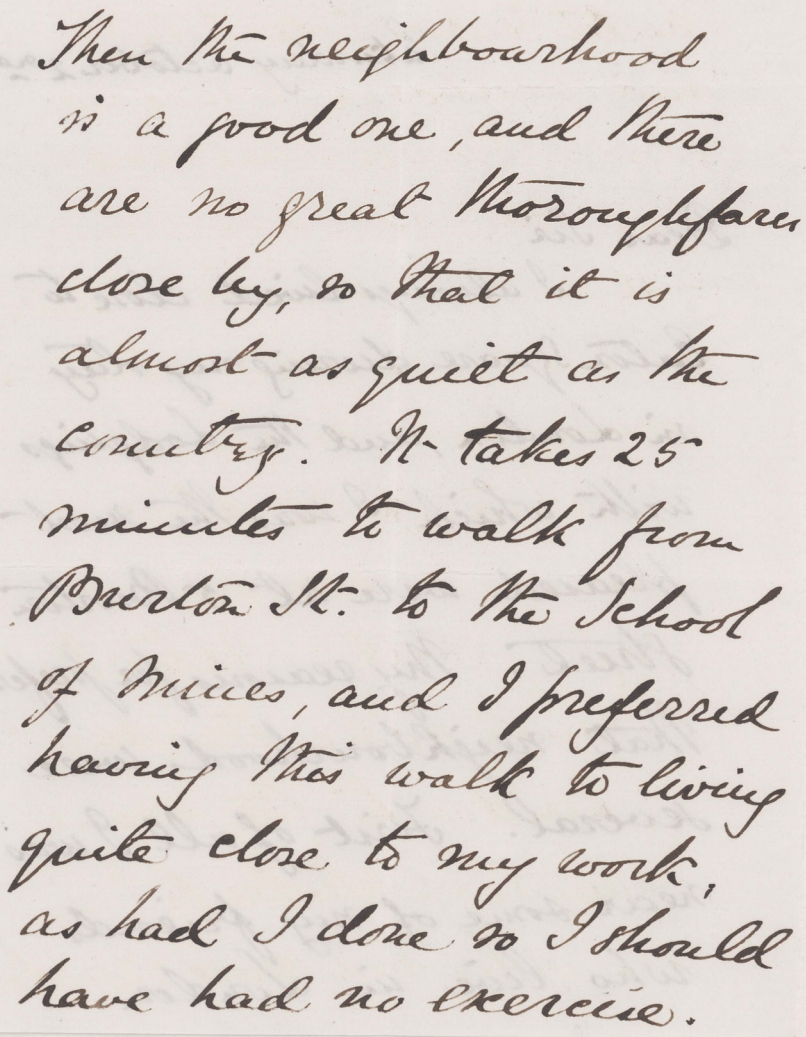 Then the neighbourhood
is a good one, and there
are no great thoroughfares
close by, so that it is
almost as quiet as the
country. It takes 25
minutes to walk from
Burton St. to the School
of Mines, and I preferred
having this walk to living
quite close to my work,
as had I done so I should
have had no exercise.